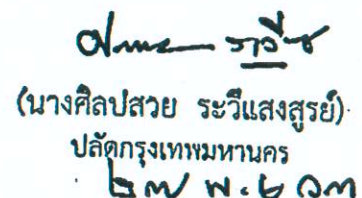 (นางศิลปสวย ระวีแสงสูรย์)
ปลัดกรุงเทพมหานคร
๒๗ พ.ย. ๖๓